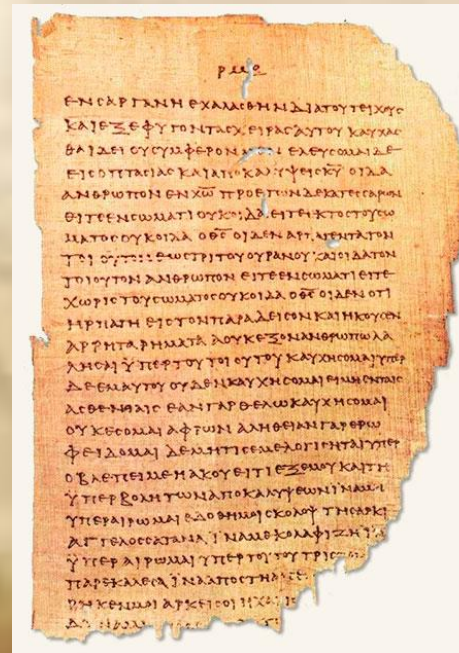 ΕΝ ΣΑΡΓΑΝΗ ΕΧΑΛΑΣΘΗΝ ΔΙΑ ΤΟΥ ΤΕΙΧΟΥΣ
ΚΑΙ ΕΞΕΦΥΓΟΝ ΤΑΣ ΧΕΙΡΑΣ ΑΥΤΟΥ ΚΑΥΧΑΣ
ΘΑΙ ΔΕΙ ΟΥ ΣΥΜΦΕΡΟΝ ΕΛΕΥΣΟΜΑΙ ΔΕ
ΕΙΣ ΟΠΤΑΣΙΑΣ ΚΑΙ ΑΠΟΚΑΛΥΨΕΙΣ Κ̅Υ̅ ΟΙΔΑ
ΑΝΘΡΩΠΟΝ ΕΝ Χ̅Ω̅ ΠΡΟ ΕΤΩΝ ΔΕΚΑΤΕΣΣΑΡΩΝ
ΕΙΤΕ ΕΝ ΣΩΜΑΤΙ ΟΥΚ ΟΙΔΑ ΕΙΤΕ ΕΚΤΟΣ ΤΟΥ ΣΩ
ΜΑΤΟΣ ΟΥΚ ΟΙΔΑ Ο Θ̅Σ̅ ΟΙΔΕΝ ΑΡΠΑΓΕΝΤΑ ΤΟΝ
ΤΟΙΟΥΤΟΝ ΕΩΣ ΤΡΙΤΟΥ ΟΥΡΑΝΟΥ ΚΑΙ ΟΙΔΑ ΤΟΝ
ΤΟΙΟΥΤΟΝ ΑΝΘΡΩΠΟΝ ΕΙΤΕ ΕΝ ΣΩΜΑΤΙ ΕΙΤΕ
ΧΩΡΙΣ ΤΟΥ ΣΩΜΑΤΟΣ ΟΥΚ ΟΙΔΑ Ο Θ̅Σ̅ ΟΙΔΕΝ ΟΤΙ
ΗΡΠΑΓΗ ΕΙΣ ΤΟΝ ΠΑΡΑΔΕΙΣΟΝ ΚΑΙ ΗΚΟΥΣΕΝ
ΑΡΡΗΤΑ ΡΗΜΑΤΑ Α ΟΥΚ ΕΞΟΝ ΑΝΘΡΩΠΩ ΛΑ
ΛΗΣΑΙ ΫΠΕΡ ΤΟΥ ΤΟΙΟΥΤΟΥ ΚΑΥΧΗΣΟΜΑΙ ΥΠΕΡ
ΔΕ ΕΜΑΥΤΟΥ ΟΥΔΕΝ ΚΑΥΧΗΣΟΜΑΙ ΕΙ ΜΗ ΕΝ ΤΑΙΣ
ΑΣΘΕΝΙΑΙΣ ΕΑΝ ΓΑΡ ΘΕΛΩ ΚΑΥΧΗΣΟΜΑΙ
ΟΥΚ ΕΣΟΜΑΙ ΑΦΡΩΝ ΑΛΗΘΕΙΑΝ ΓΑΡ ΕΡΩ
ΦΕΙΔΟΜΑΙ ΔΕ ΜΗ ΤΙΣ ΕΜΕ ΛΟΓΙΣΗΤΑΙ ΥΠΕΡ
Ο ΒΛΕΠΕΙ ΜΕ Η ΑΚΟΥΕΙ ΤΙ ΕΞ ΕΜΟΥ ΚΑΙ ΤΗ
ΫΠΕΡΒΟΛΗ ΤΩΝ ΑΠΟΚΑΛΥΨΕΩΝ ΪΝΑ ΜΗ
ΥΠΕΡΑΙΡΩΜΑΙ ΕΔΟΘΗ ΜΟΙ ΣΚΟΛΟΨ ΤΗ ΣΑΡΚΙ
ΑΓΓΕΛΟΣ ΣΑΤΑΝΑ ΪΝΑ ΜΕ ΚΟΛΑΦΙΖΗ
ΫΠΕΡΑΙΡΩΜΑΙ ΥΠΕΡ ΤΟΥΤΟΥ ΤΡΙΣ
ΠΑΡΕΚΑΛΕΣΑ ΪΝΑ ΑΠΟΣΤΗ
ΜΟΙ ΑΡΚΕΙ ΣΟΙ Η